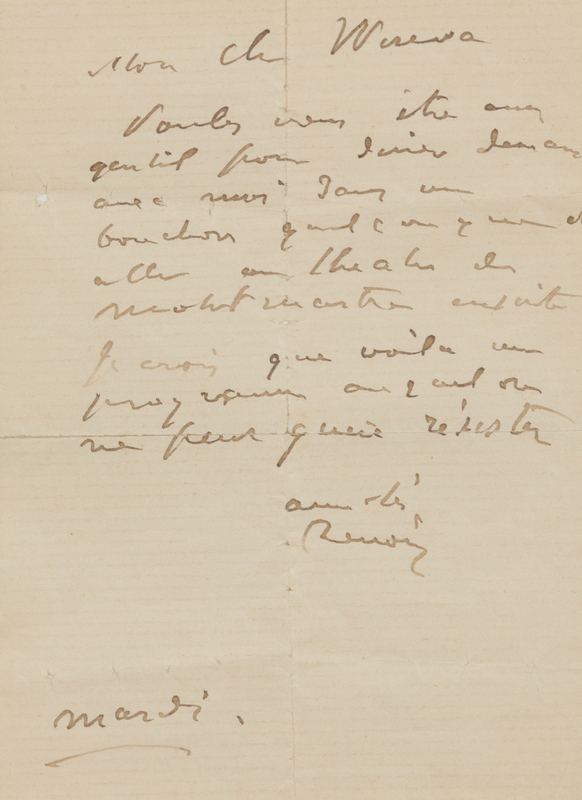 Mon Cher Wizewa
Voulez vous être assez
gentil pour diner demain
avec moi dans un
bouchon quelconque et
aller au theatre de
Montmartre ensuite
Je crois que voila un
programme auquel on
ne peut guère résister
amitiés
Renoir
mardi.